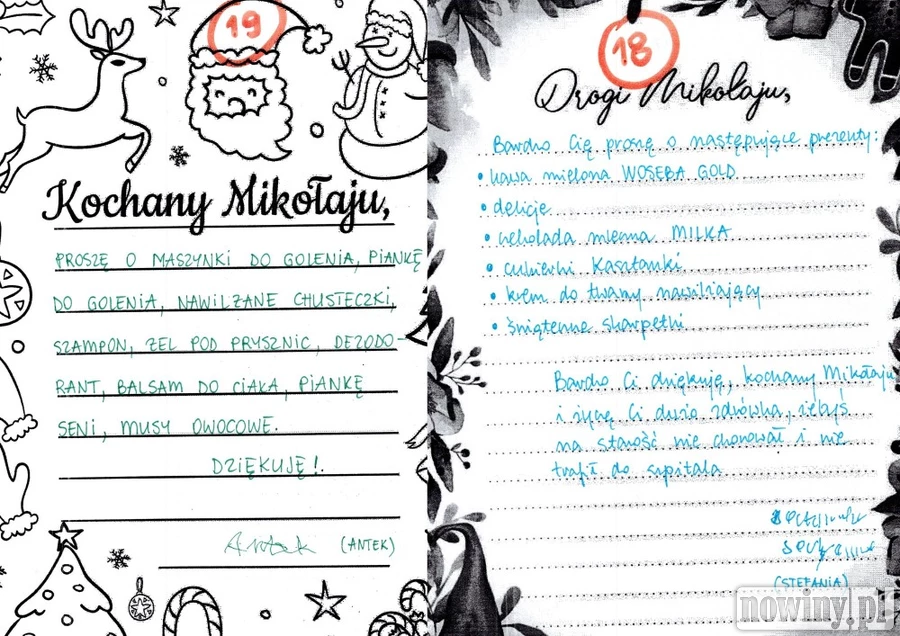 19
Kochany Mikołaju,
PROSZĘ O MASZYNKI DO GOLENIA, PIANKĘ
DO GOLENIA, NAWILŻANE CHUSTECZKI,
SZAMPON, ŻEL POD PRYSZNIC, DEZODO-
RANT, BALSAM DO CIAŁA, PIANKĘ
SENI, MUSY OWOCOWE.
DZIĘKUJĘ!
Antek (ANTEK)
18
Drogi Mikołaju,
Bardzo Cię proszę o następujące prezenty:
• kawa mielona WOSEBA GOLD
• delicje
• czekolada mleczna MILKA
• cukierki Kasztanki
• krem do twarzy nawilżający
• świąteczne skarpetki
Bardzo Ci dziękuję, kochany Mikołaju
i życzę Ci dużo zdrówka, żebyś
na starość nie chorował i nie
trafił do szpitala
(STEFANIA)
nowiny.pl